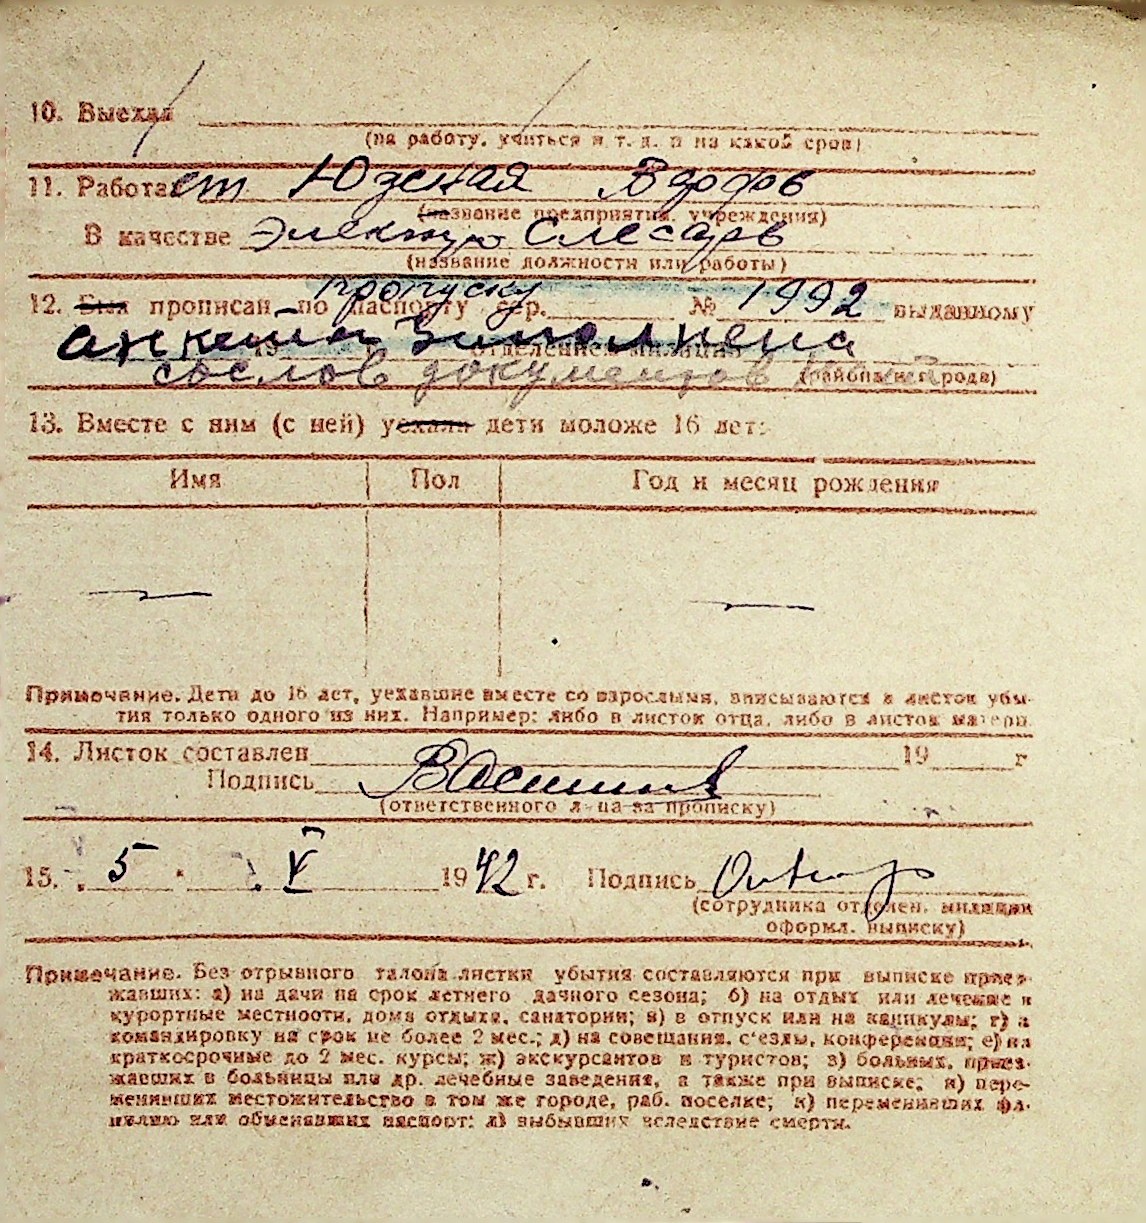 10. Выехал
(на работу, учиться и т. д. и на какой срок)
11. Работает Южная Верфь
(название предприятия, учреждения)
В качестве Электро Слесарь
(название должности или работы)
пропуску
12. Был прописан по паспорту сер. № 1992 выданному
анкета Заполнена
19 отделением милиции
сослов документов
(района и города)
13. Вместе с ним (с ней) уехали дети моложе 16 лет:
Имя Пол Год и месяц рождения
Примечание. Дети до 16 лет, уехавшие вместе со взрослыми, вписываются в листок убы-
тия только одного из них. Например: либо в листок отца, либо в листок матери.
14. Листок составлен 19 г
Подпись
(ответственного лица за прописку)
15. 5 V 1942 г. Подпись
(сотрудника отделен. милиции
оформл. выписку)
Примечание. Без отрывного талона листки убытия составляются при выписке приез-
жавших: а) на дачи на срок летнего дачного сезона; б) на отдых или лечение в
курортные местности, дома отдыха, санатории; в) в отпуск или на каникулы; г) в
командировку на срок не более 2 мес.; д) на совещания, с'езды, конференции; е) на
краткосрочные до 2 мес. курсы; ж) экскурсантов и туристов; з) больных, приез-
жавших в больницы или др. лечебные заведения, а также при выписке; и) пере-
менивших местожительство в том же городе, раб. поселке; к) переменивших фа-
милию или обменявших паспорт; л) выбывших вследствие смерти.